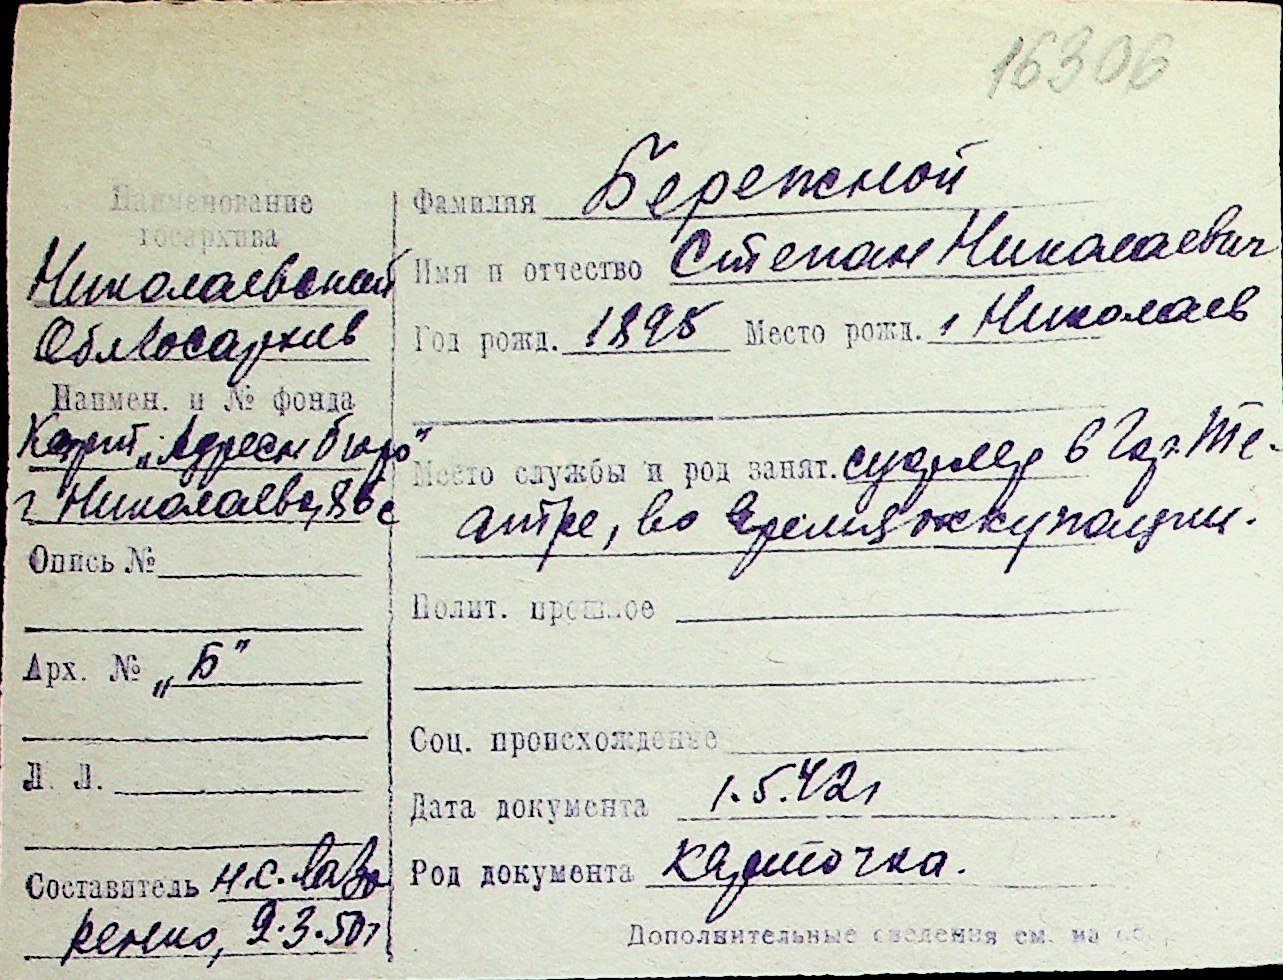 16306
Наименование
госархива
Николаевский
Облгосархив
Наимен. и № фонда
Карт. „Адресн бюро"
г Николаева,
Опись №
Арх. № „Б"
Л. Л.
Составитель Н.С. Лаза
ренко, 9.3.50г
Фамилия Бережной
Имя и отчество Степан Николаевич
Год рожд. 1895 Место рожд. г Николаев
Место службы и род занят. суфлер в Гор. Те-
атре, во время оккупации.
Полит. прошлое
Соц. происхождение
Дата документа 1.5.42г
Род документа карточка.
Дополнительные сведения см. на обор.